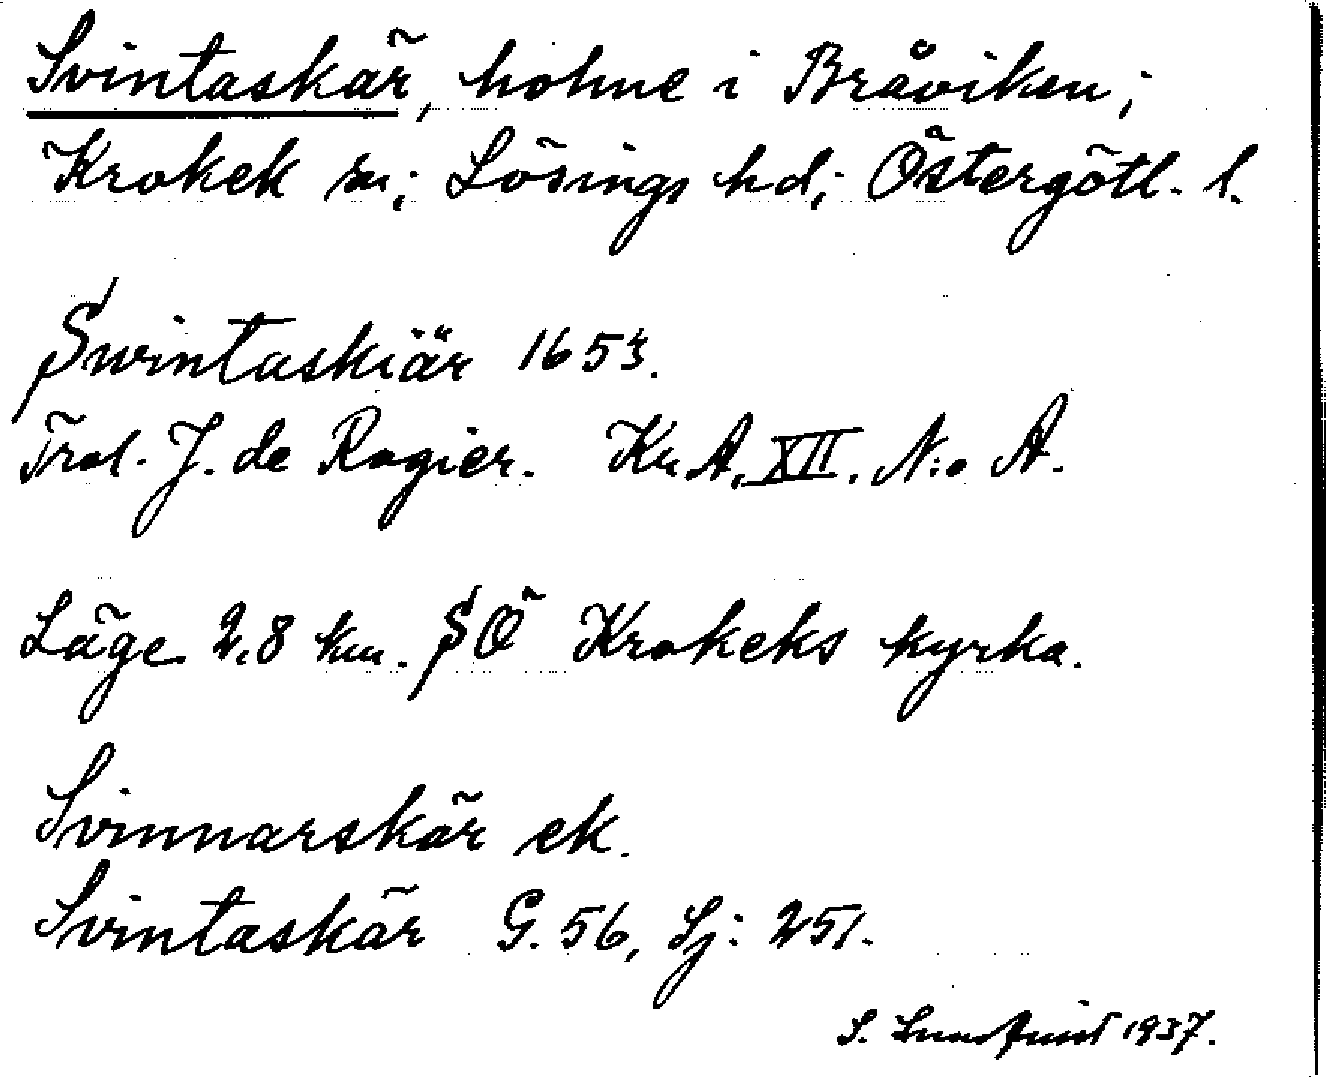 Svintaskär, holme i Bråviken;
Krokek sn; Lösings hd; Östergötl. l.
Swintaskiär 1653.
Trol. J. de Rogier. Kr.A. XII. N:o A.
Läge 2,8 km. SÖ Krokeks kyrka.
Svinnarskär ek.
Svintaskär G. 56, Sj: 251.
S. Lundquist 1937.